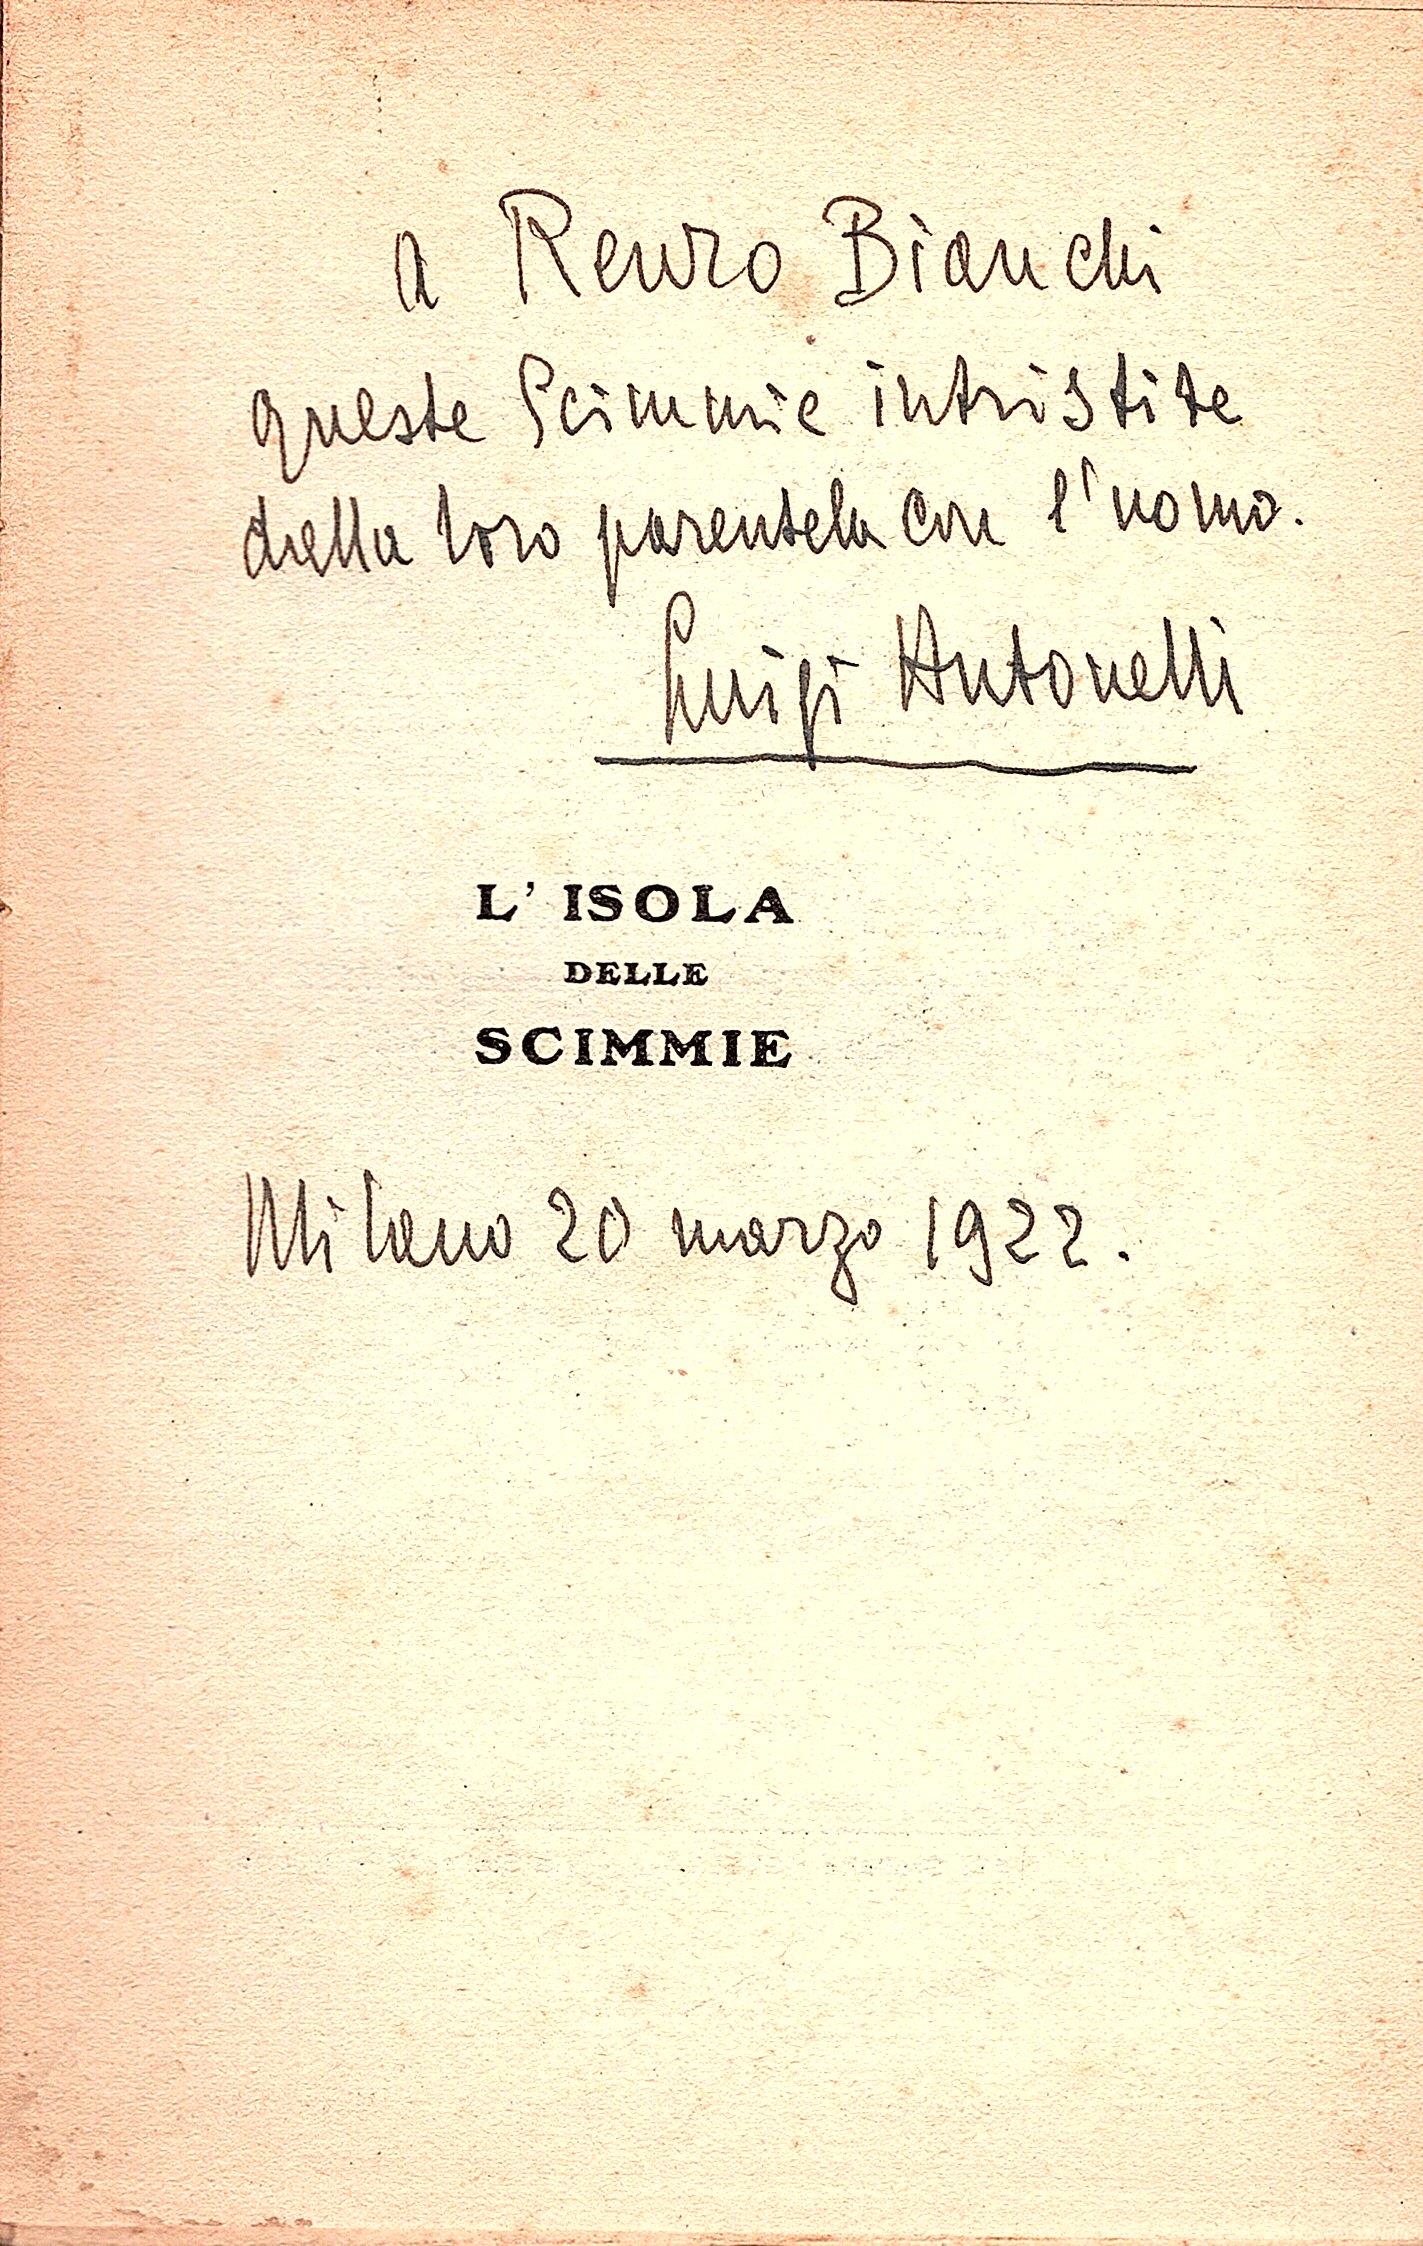 a Renzo Bianchi
queste Scimmie intristite
della loro parentela con l'uomo.
Luigi Antonelli
L' ISOLA
DELLE
SCIMMIE
Milano 20 marzo 1922.